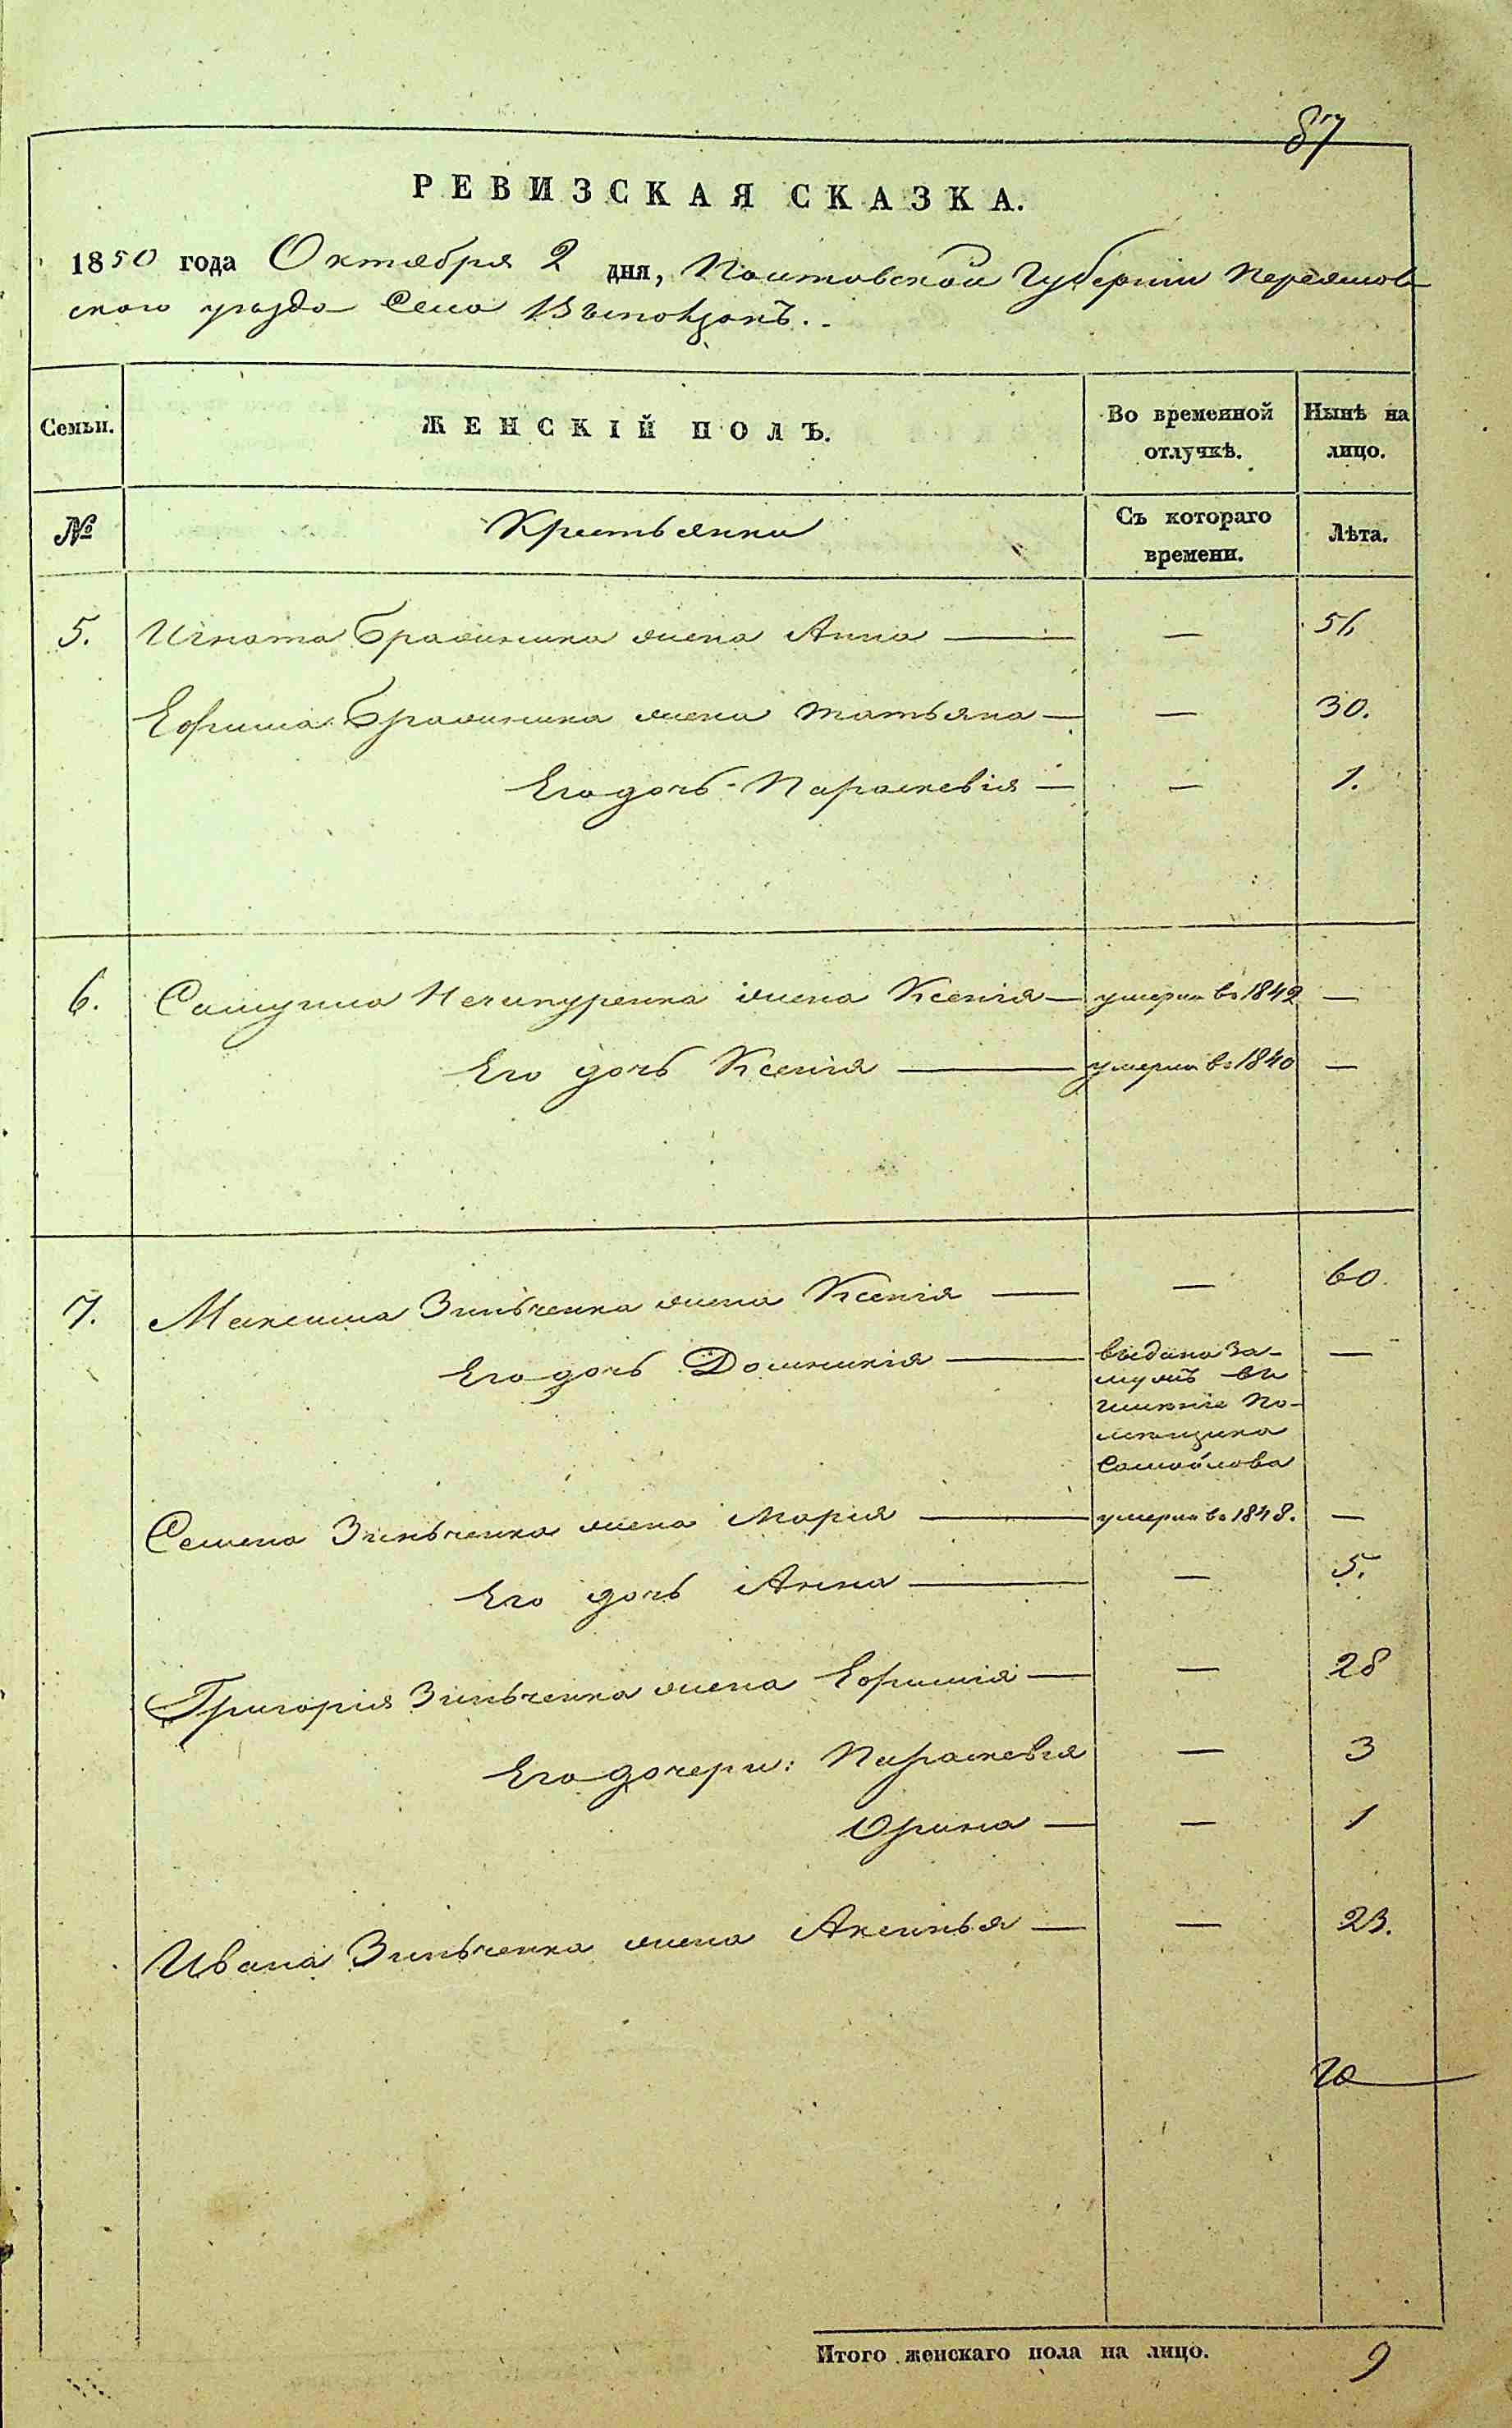 87
РЕВИЗСКАЯ СКАЗКА.
1850 года Октября 2 дня, Полтавской Губернии Переяслов
ского уезда Села Выповзокъ.
Семьи. ЖЕНСКІЙ ПОЛЪ. Во временной отлучкѣ. Нынѣ на лицо.
№ Крестьянки Съ котораго времени. Лѣта.
5. Игната жена Анна — — 56
Ефима жена Татьяна — — 30.
Его дочь Параскевія — — 1.
6. Самуила Нечипуренка жена Ксенія — умерла въ 1842 —
Его дочь Ксенія — умерла въ 1840 —
7. Максима Зинченка жена Ксенія — — 60.
Его дочь Домникія — выдана за- —
мужъ въ
имѣніе по-
мѣщика
Самойлова
Семена Зинченка жена Марія — умерла въ 1848. —
Его дочь Анна — — 5.
Григорія Зинченка жена Ефимія — — 28
Его дочери: Параскевія — 3
Орина — — 1
Ивана Зинченка жена Аксинья — — 23.
Итого женскаго пола на лицо. 9